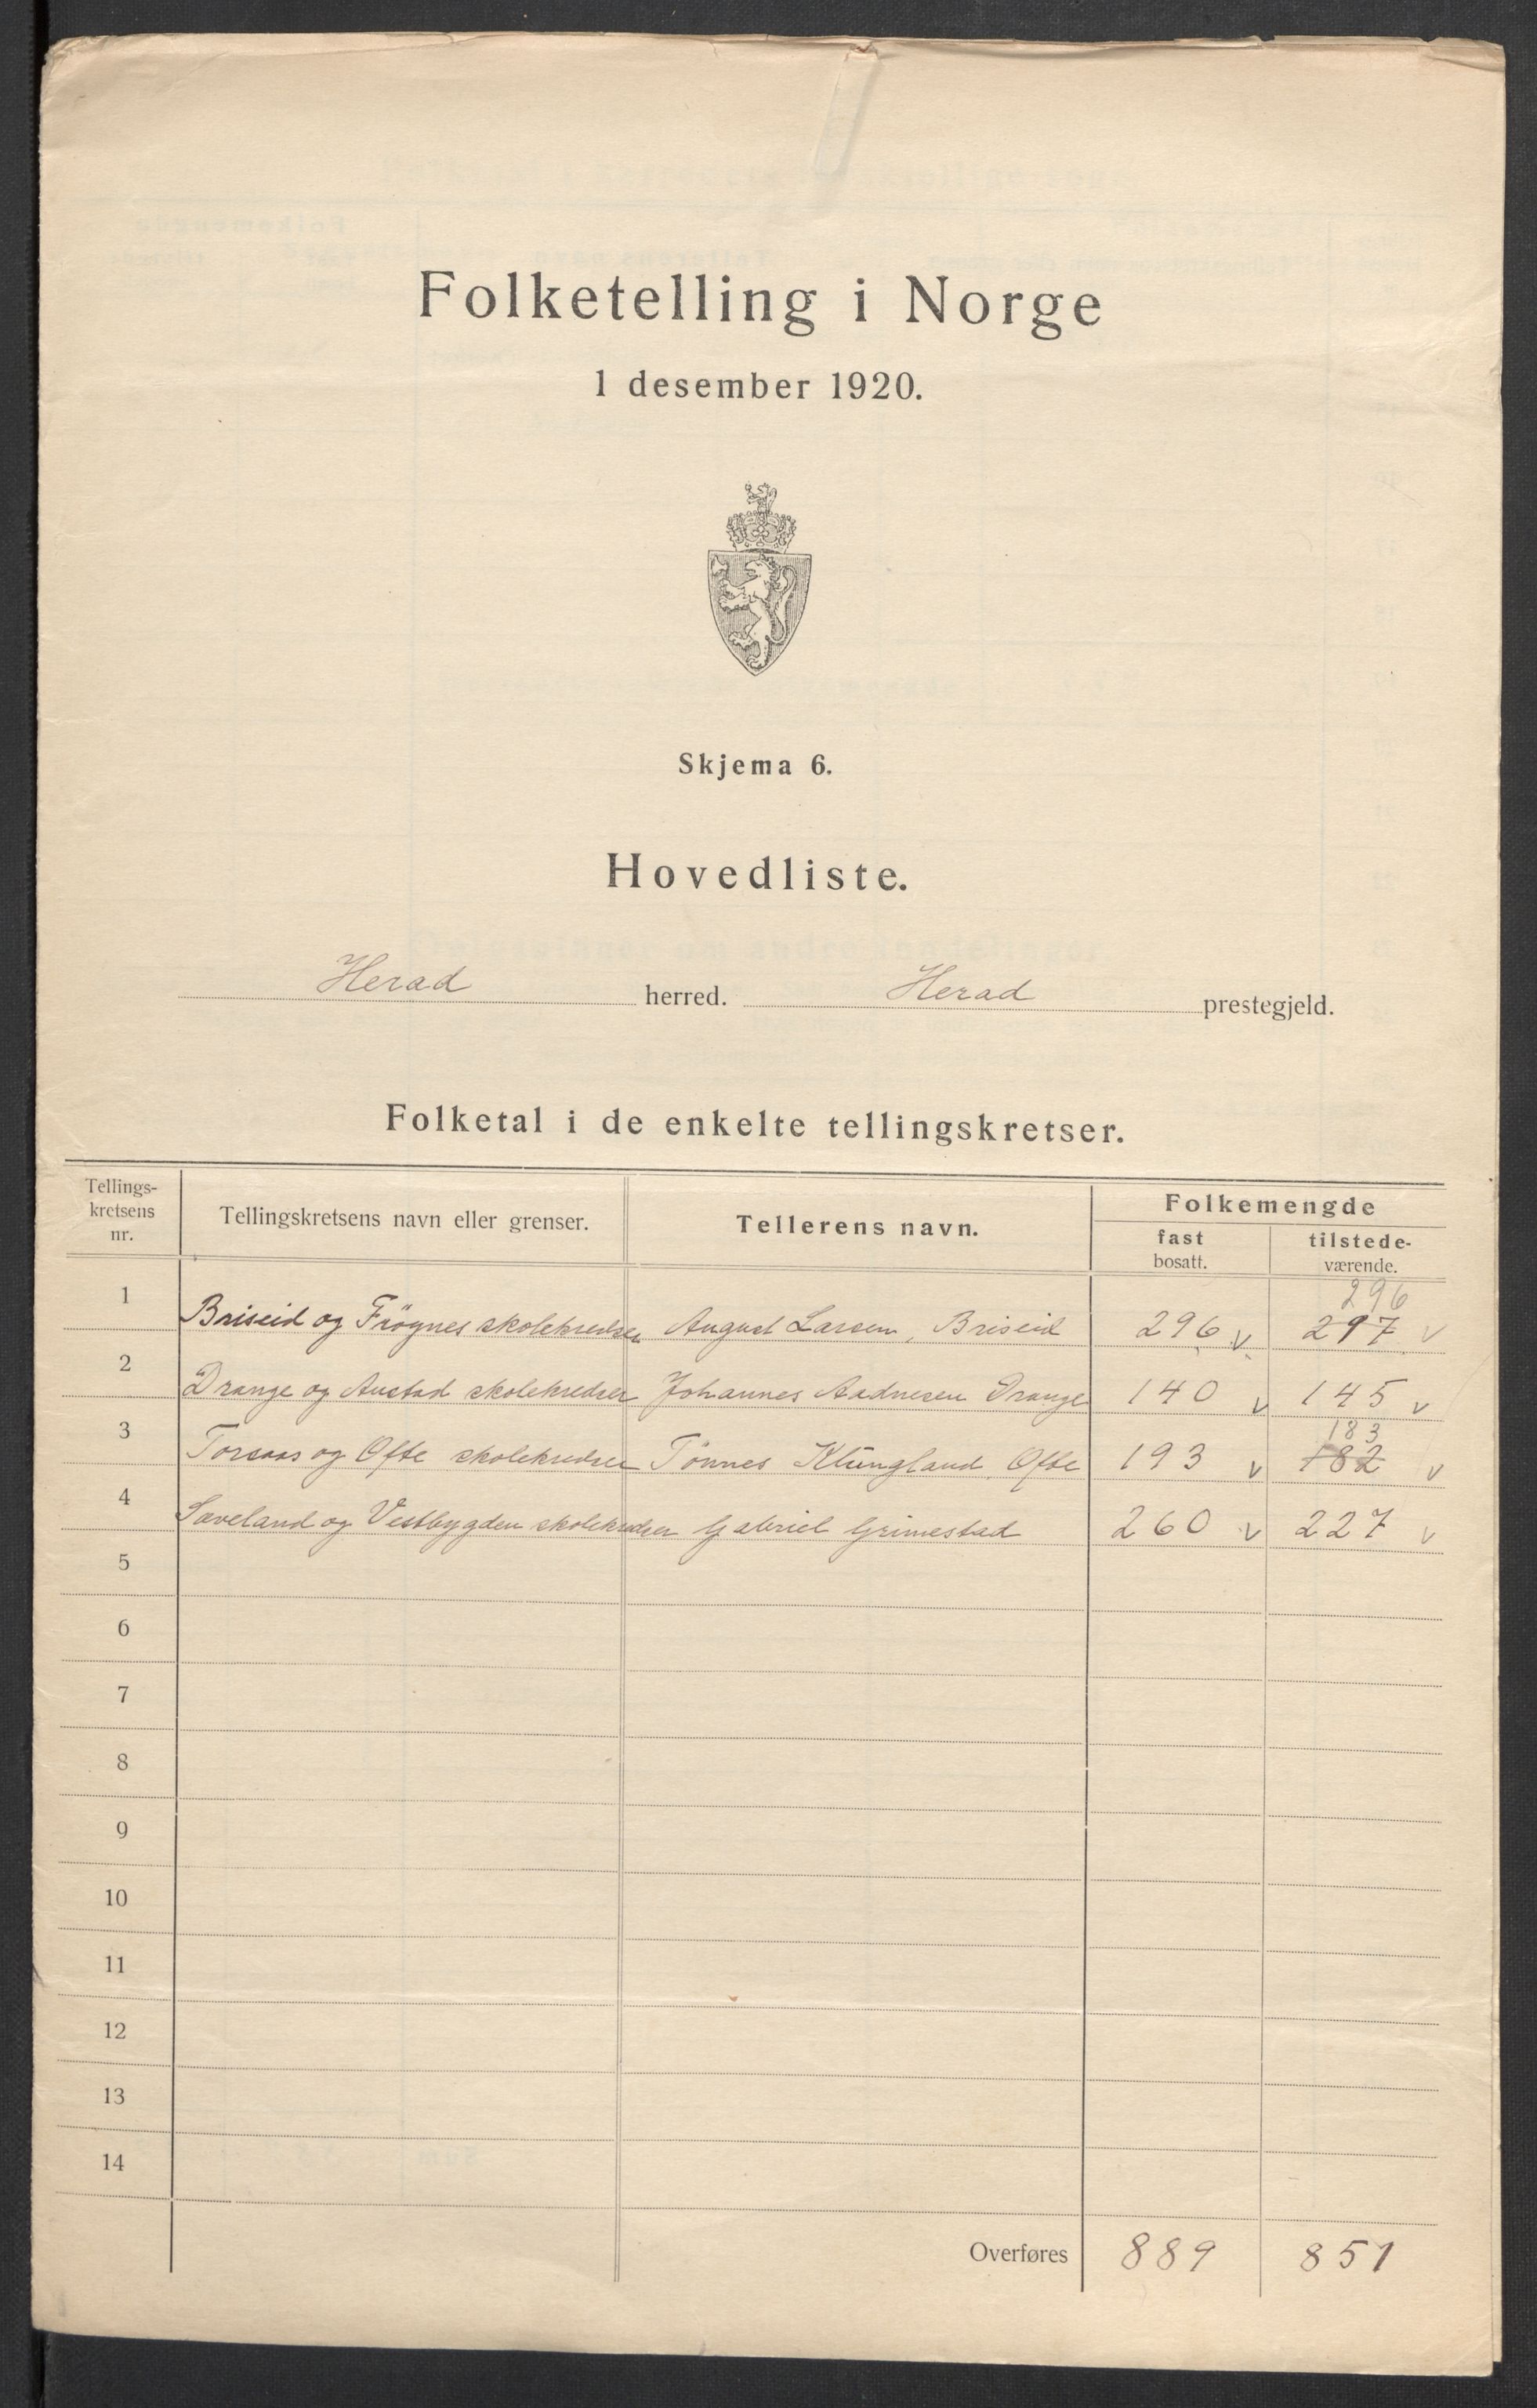 Folketelling i Norge
1 desember 1920.
Skjema 6.
Hovedliste.
Herad herred. Herad prestegjeld.
Folketal i de enkelte tellingskretser.
Tellings-
kretsens
nr.
Tellingskretsens navn eller grenser.
Tellerens navn.
Folkemengde
fast
bosatt.
tilstede-
værende.
296
1 Briseid og Frøynes skolekredser August Larsen, Briseid 296 v 297 v
2 Drange og Austad skolekredser Johannes Aadnesen Drange 140 v 145 v
183
3 Torsaas og Ofte skolekredser Tönnes Klungland Ofte 193 v 182 v
4 Sæveland og Vestbygden skolekredser Gabriel Grimestad 260 v 227 v
5
6
7
8
9
10
11
12
13
14
Overføres 889 851